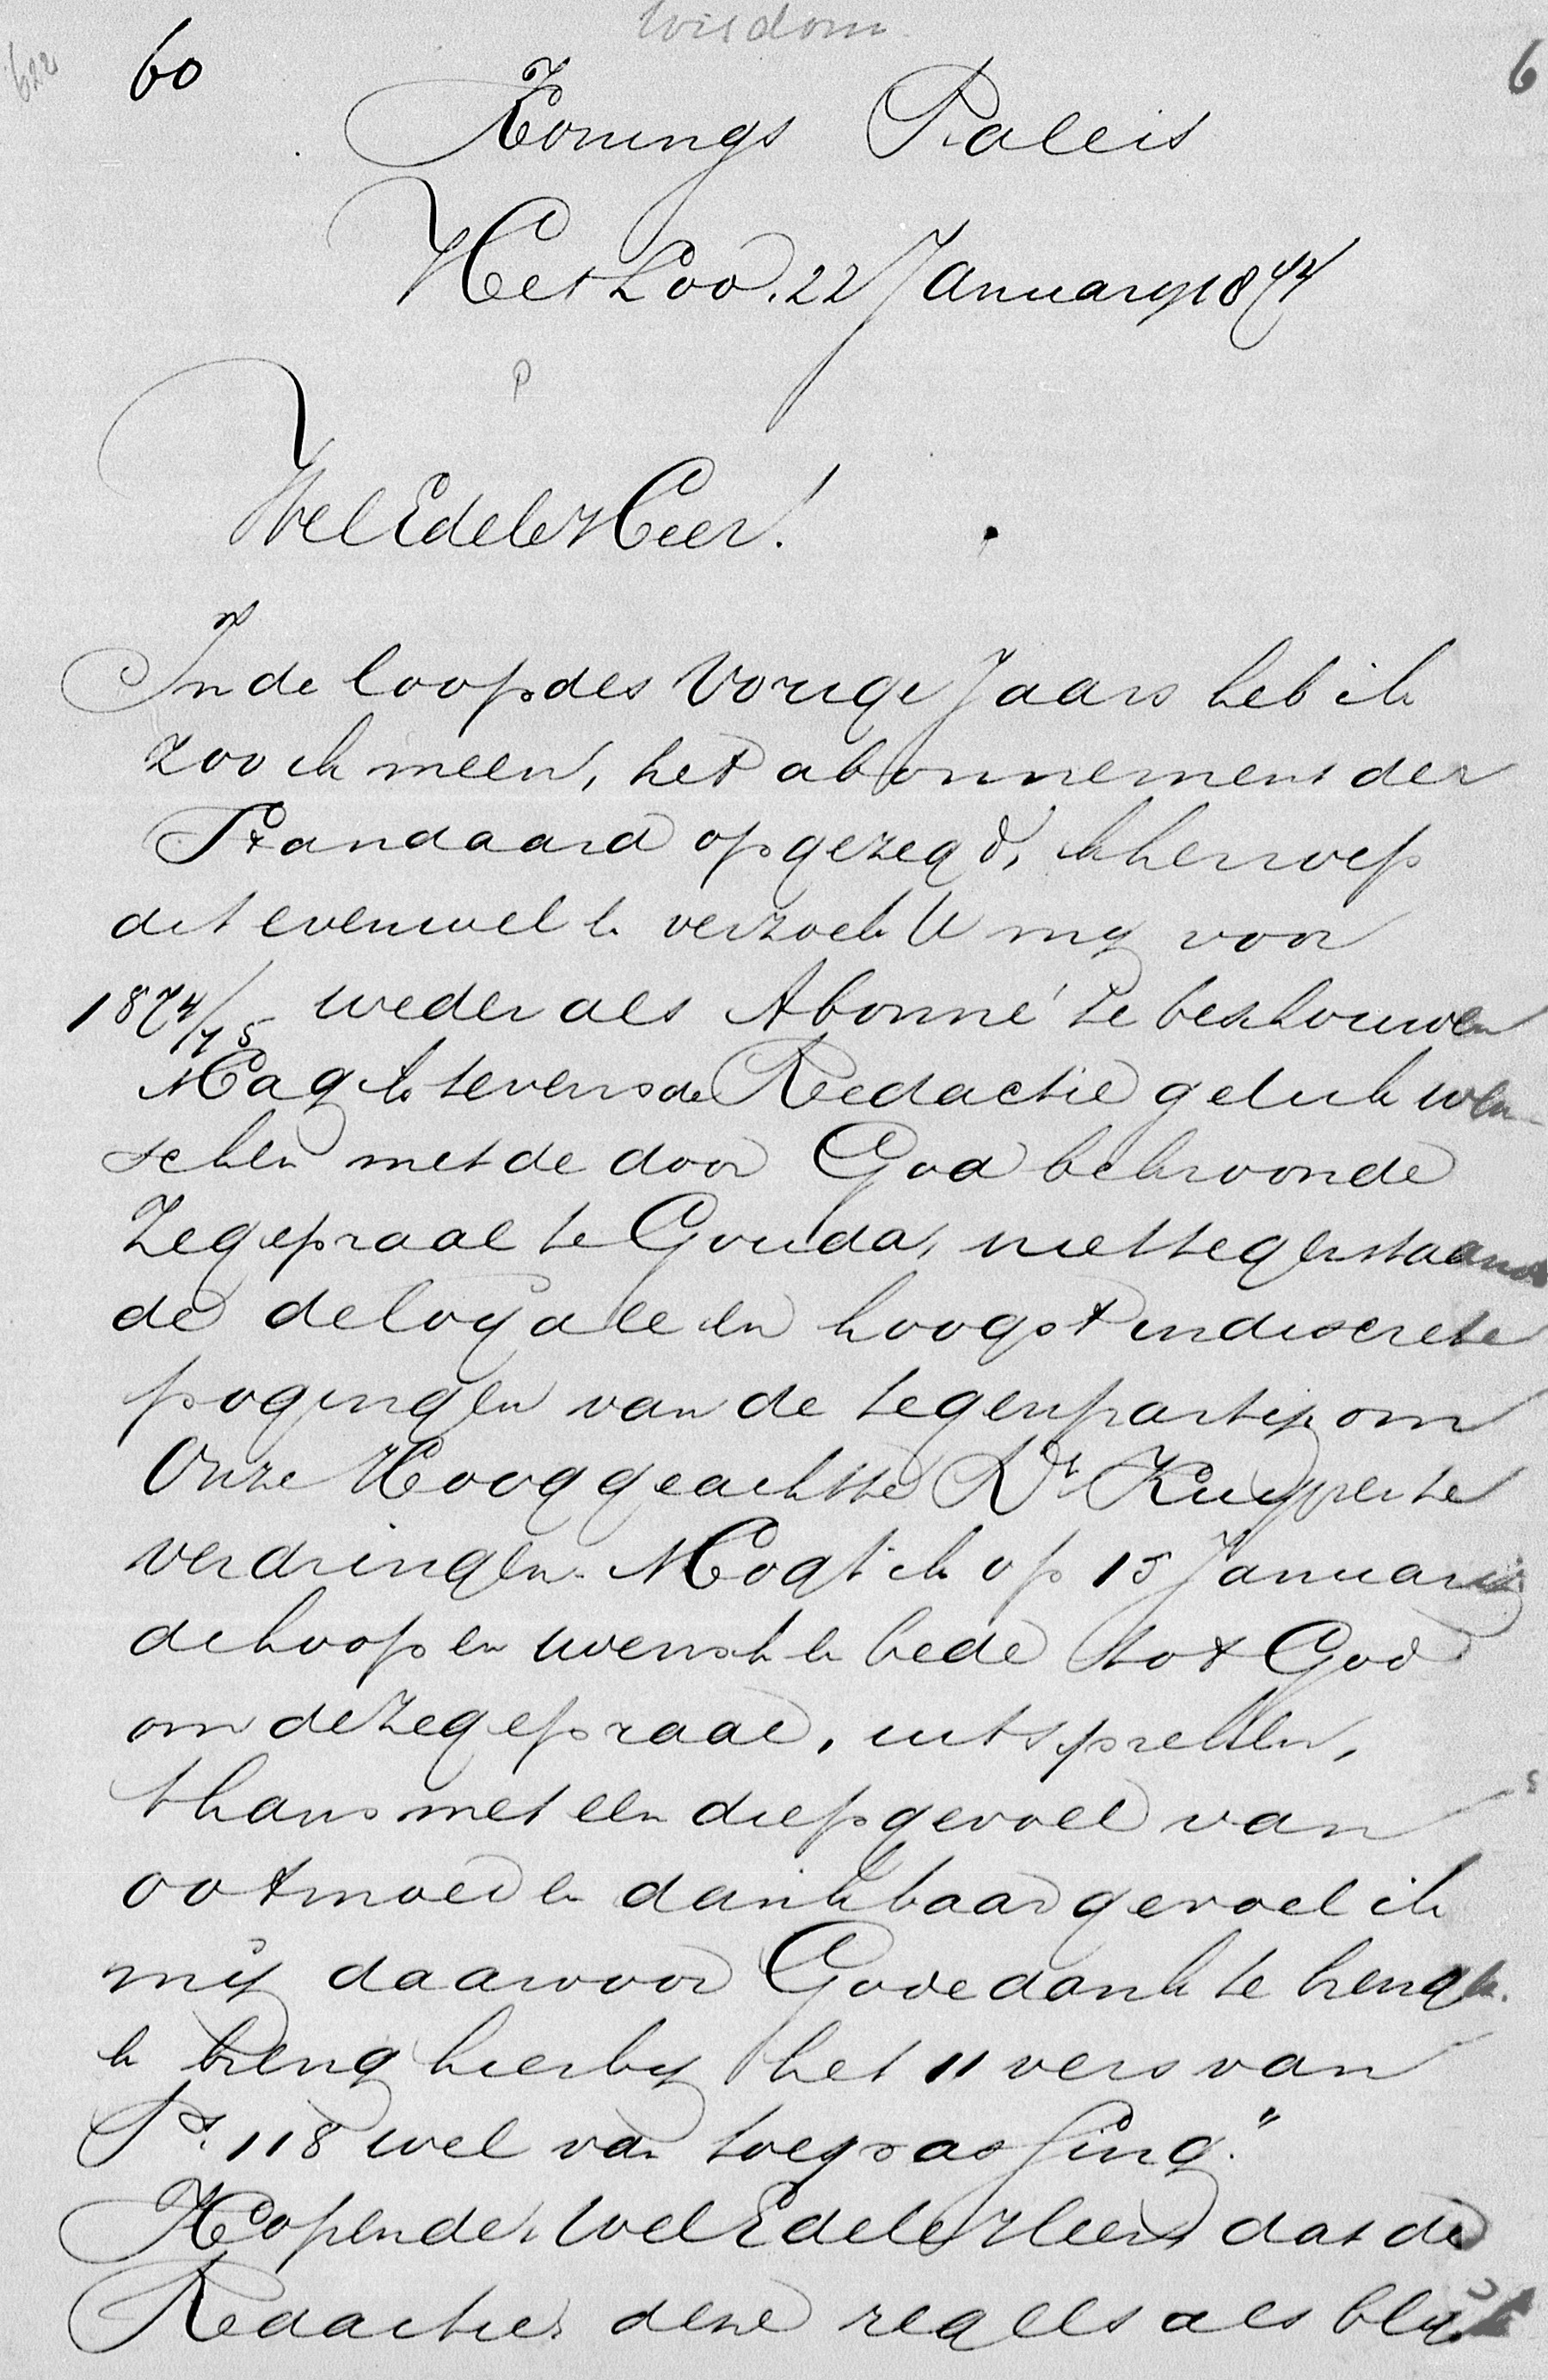 Wisdom
622 60 6
Konings Paleis
Het Loo. 22 January 1874
P
WelEdele Heer!
In de loop des vorige Jaars heb ik
zoo ik meen, het abonnement der
Standaard opgezegd, ik herroep
dit evenwel & verzoek U my voor
1874/75 weder als Abonné te beschouwen
Mag ik tevens de Redactie geluk wen-
schen met de door God bekroonde
Zegepraal te Gouda, niettegenstaande
de deloyale en hoogst indiscrete
pogingen van de tegenpartij om
Onze Hooggeachtte Dr Kuyper te
verdringen. Mogt ik op 15 January
de hoop en wensch & bede tot God
om de zegepraal, uitspreken,
thans met een diep gevoel van
ootmoed & dankbaar gevoel ik
mij daarvoor Gode dank te brengen.
& breng hierby het 11 vers van
Ps. 118 wel van toepassing."
Hopende, WelEdele Heer, dat de
Redactie, deze regels als blijk